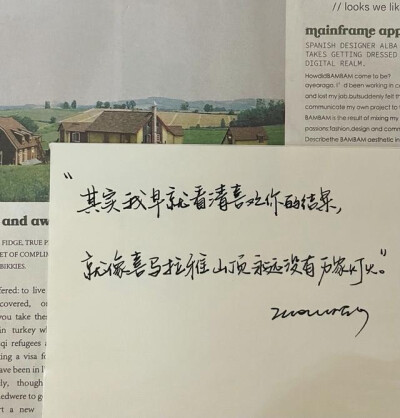 // looks we lik
mainframe app
SPANISH DESIGNER ALBA
TAKES GETTING DRESSED
DIGITAL REALM.
HowdidBAMBAM come to be?
been working in c
and lost my job.butsuddenly felt th
communicate my own project to
BAMBAM is the result of mixing my
passions:fashion,design and comm
Describethe BAMBAM aesthetic in
"其实我早就看清喜欢你的结果,
就像喜马拉雅山顶永远没有万家灯火。"
and aw
FIDGE, TRUE P
ET OF COMPLIM
BIKKIES.
fered: to live
covered, o
you take thes
in turkey wh
qi refugees a
ting a visa fo
have been in l
ly, though
edwere to g
rt a new